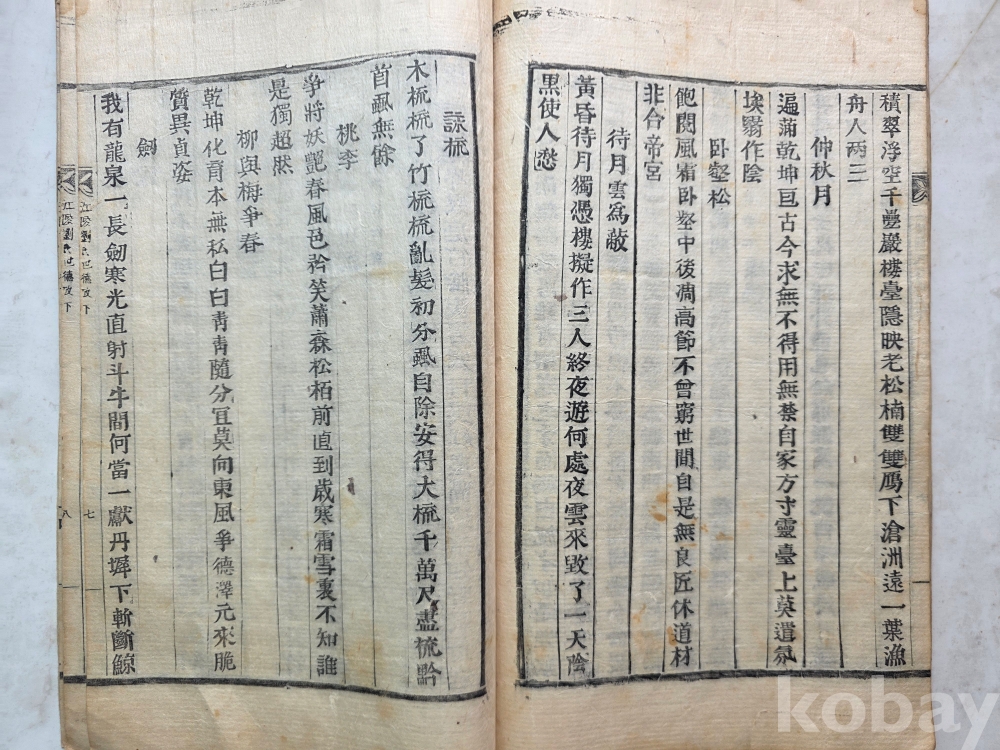 積翠浮空千疊巖樓臺隱映老松楠雙雙鴈下滄洲遠一葉漁
舟人兩三
仲秋月
遍滿乾坤亘古今求無不得用無禁自家方寸靈臺上莫遣氛
埃翳作陰
臥壑松
飽閱風霜臥壑中後凋高節不曾窮世間自是無良匠休道材
非合帝宮
待月雲爲蔽
黃昏待月獨憑樓擬作三人終夜遊何處夜雲來毀了一天陰
黑使人愁
詠梳
木梳梳了竹梳梳亂髮初分虱自除安得大梳千萬尺盡梳黔
首虱無餘
桃李
爭將妖艶春風邑衿笑蕭森松栢前直到歲寒霜雪裏不知誰
是獨超然
柳與梅爭春
乾坤化育本無私白白靑靑隨分宜莫向東風爭德澤元來脆
質異貞姿
劒
我有龍泉一長劒寒光直射斗牛間何當一獻丹墀下斬斷鯨
江陵劉氏世德攷下
七
江陵劉氏世德攷下
八
kobay